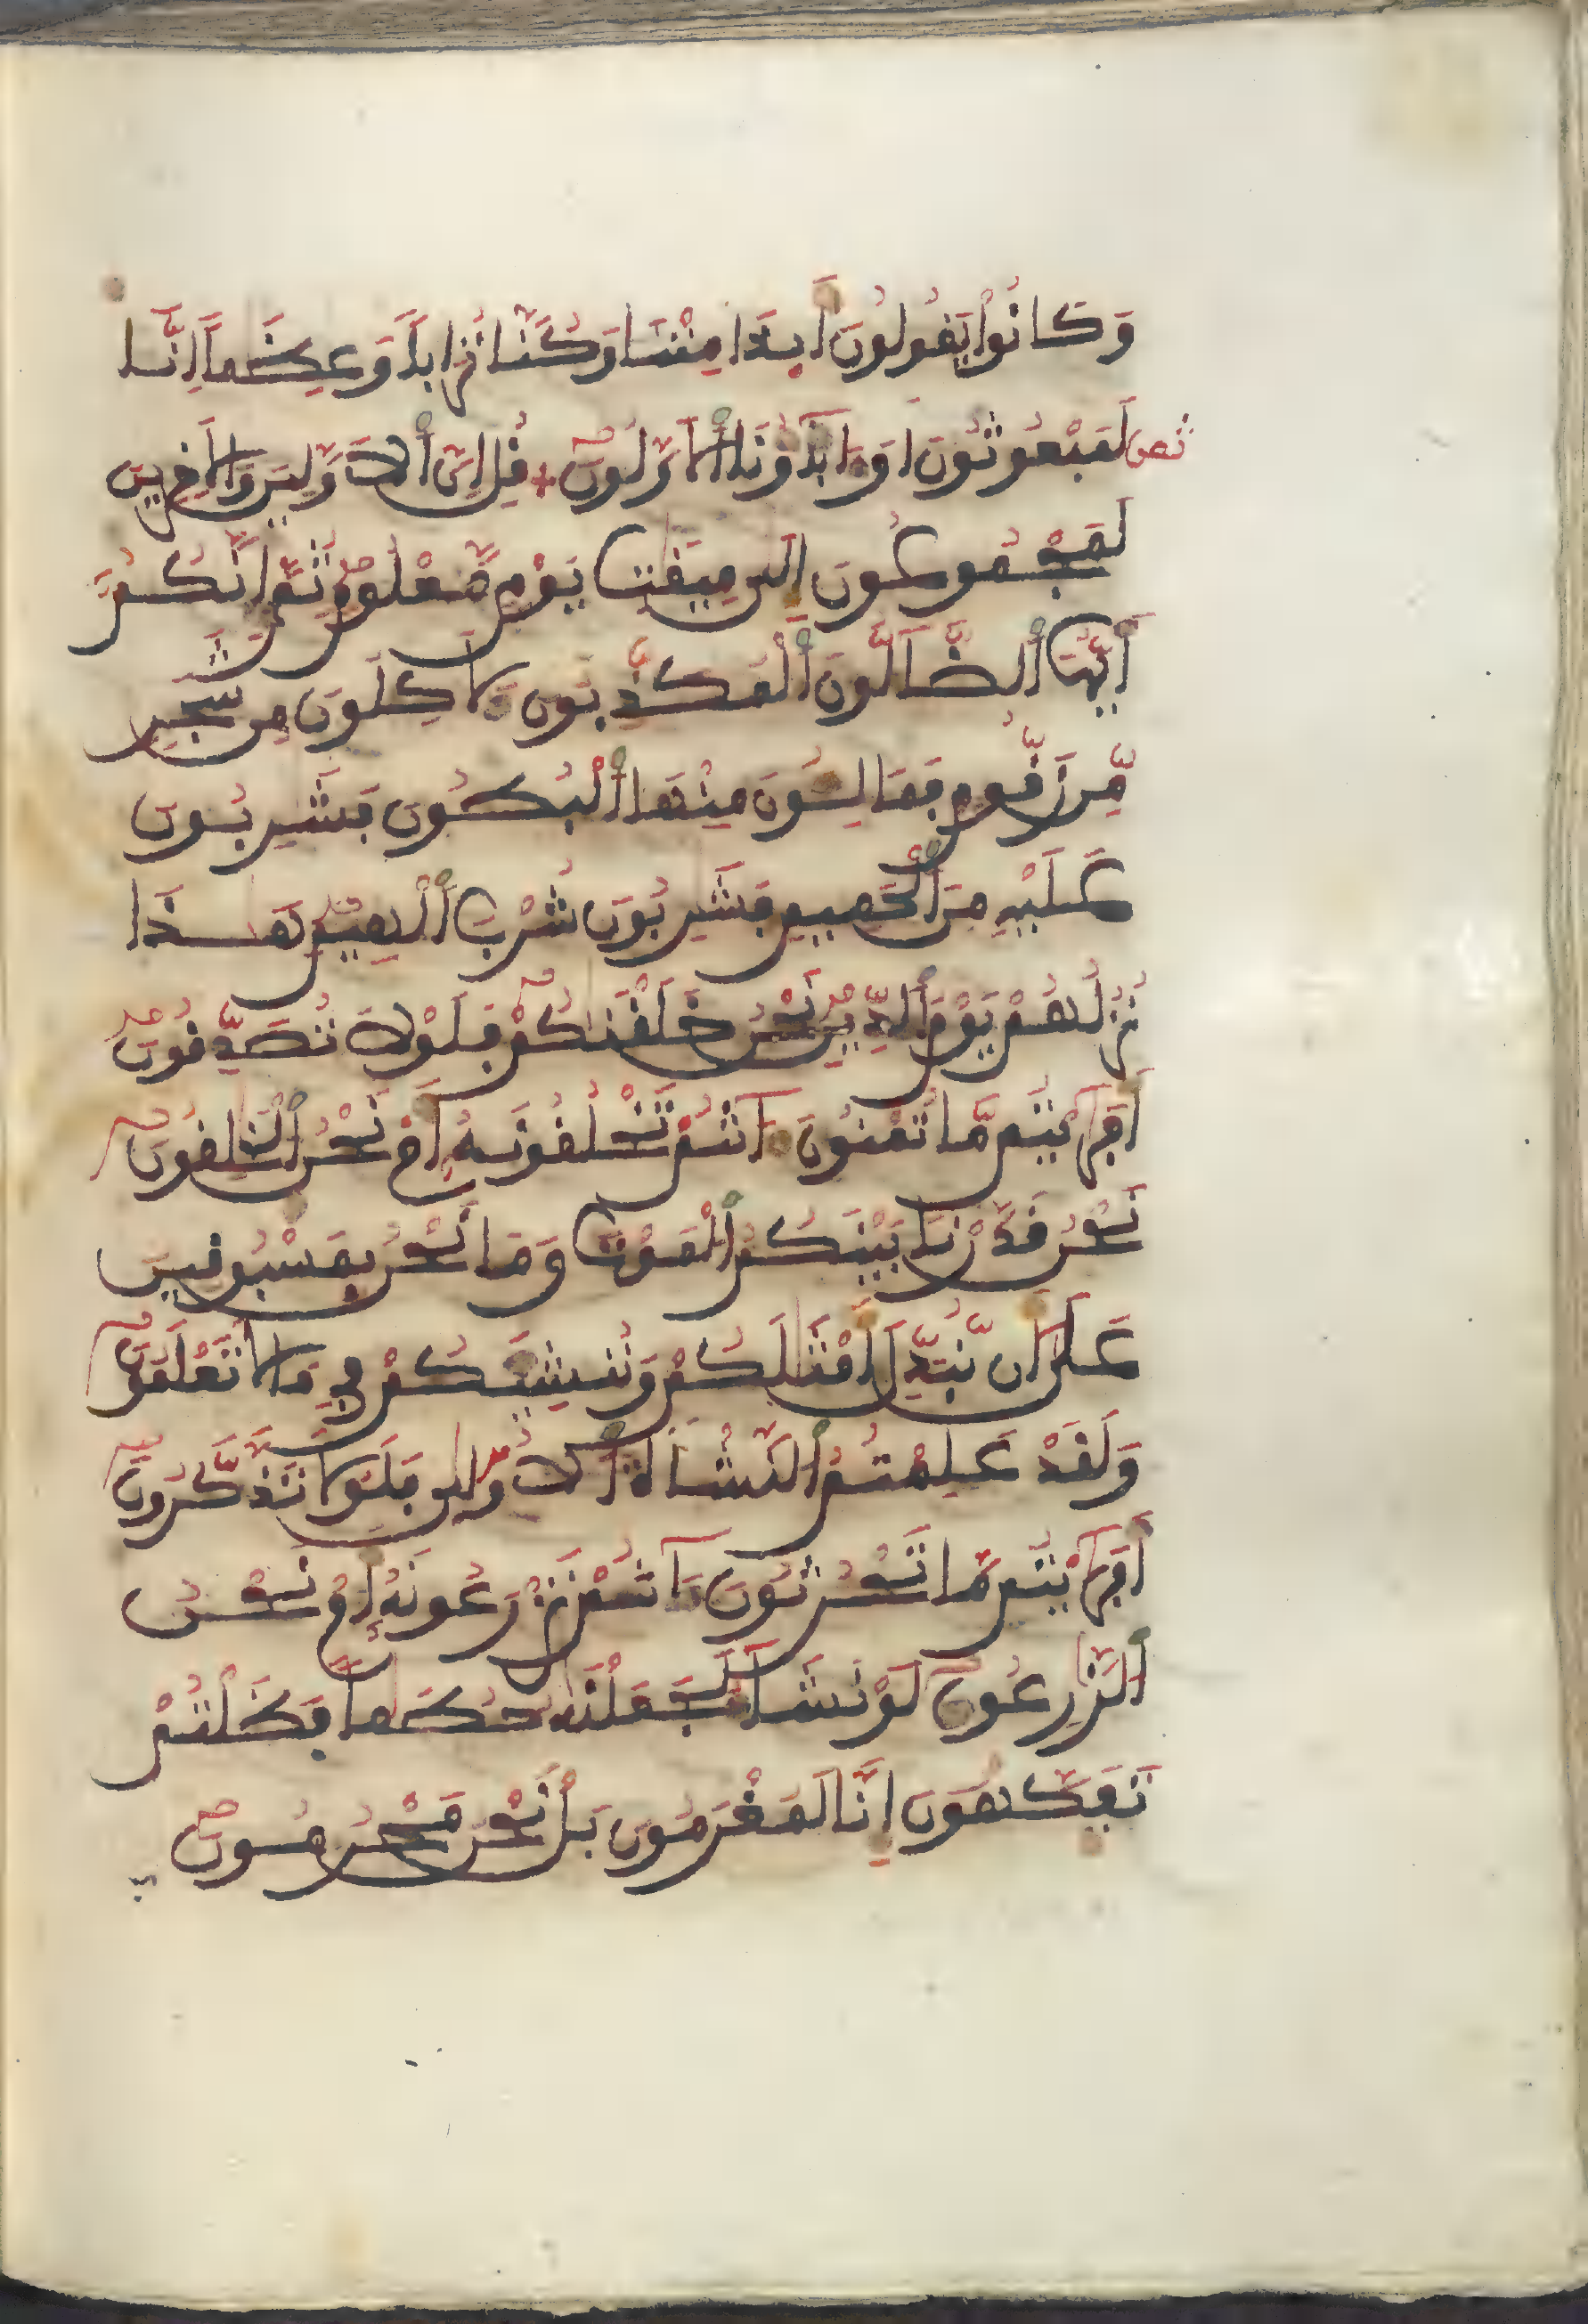 وَكَانُوا۟ يَقُولُونَ أَيِذَا مِتْنَا وَكُنَّا تُرَابًا وَعِظَٰمًا إِنَّا
ثمن لَمَبْعُوثُونَ أَوَءَابَآؤُنَا ٱلَاوَّلُونَ قُلِ اِنَّ ٱلَاوَّلِينَ وَالَاخِرِينَ
لَمَجْمُوعُونَ إِلَىٰ مِيقَٰتِ يَوْمٍ مَّعْلُومٍ ثُمَّ إِنَّكُمُۥ
أَيُّهَا ٱلضَّآلُّونَ ٱلْمُكَذِّبُونَ لَأَكِلُونَ مِن شَجَرٍ
مِّن زَقُّومٍ فَمَالِـُٔونَ مِنْهَا ٱلْبُطُونَ فَشَٰرِبُونَ
عَلَيْهِ مِنَ ٱلْحَمِيمِ فَشَٰرِبُونَ شُرْبَ ٱلْهِيمِ هَٰذَا
نُزُلُهُمْ يَوْمَ ٱلدِّينِ نَحْنُ خَلَقْنَٰكُمْ فَلَوْلَا تُصَدِّقُونَ
أَفَرَٰيْتُم مَّا تُمْنُونَ ءَآنتُمْ تَخْلُقُونَهُۥ أَمْ نَحْنُ ٱلْخَٰلِقُونَ
نَحْنُ قَدَّرْنَا بَيْنَكُمُ ٱلْمَوْتَ وَمَا نَحْنُ بِمَسْبُوقِينَ
عَلَىٰ أَن نُّبَدِّلَ أَمْثَٰلَكُمْ وَنُنشِئَكُمْ فِى مَا لَا تَعْلَمُونَ
وَلَقَدْ عَلِمْتُمُ ٱلنَّشْأَةَ ٱلُاولَىٰ فَلَوْلَا تَذَّكَّرُونَ
أَفَرَٰيْتُم مَّا تَحْرُثُونَ ءَآنتُمْ تَزْرَعُونَهُۥ أَمْ نَحْنُ
ٱلزَّٰرِعُونَ لَوْ نَشَآءُ لَجَعَلْنَٰهُ حُطَٰمًا فَظَلْتُمْ
تَفَكَّهُونَ إِنَّا لَمُغْرَمُونَ بَلْ نَحْنُ مَحْرُومُونَ